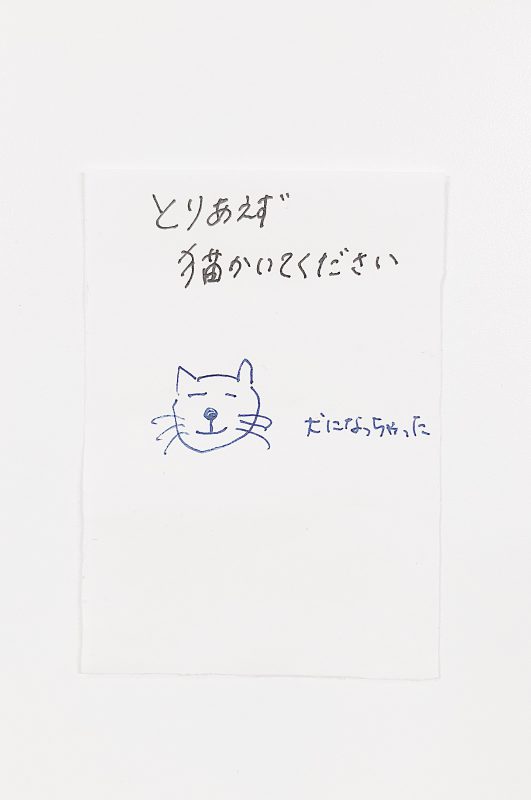 とりあえず
猫かいてください
犬になっちゃった